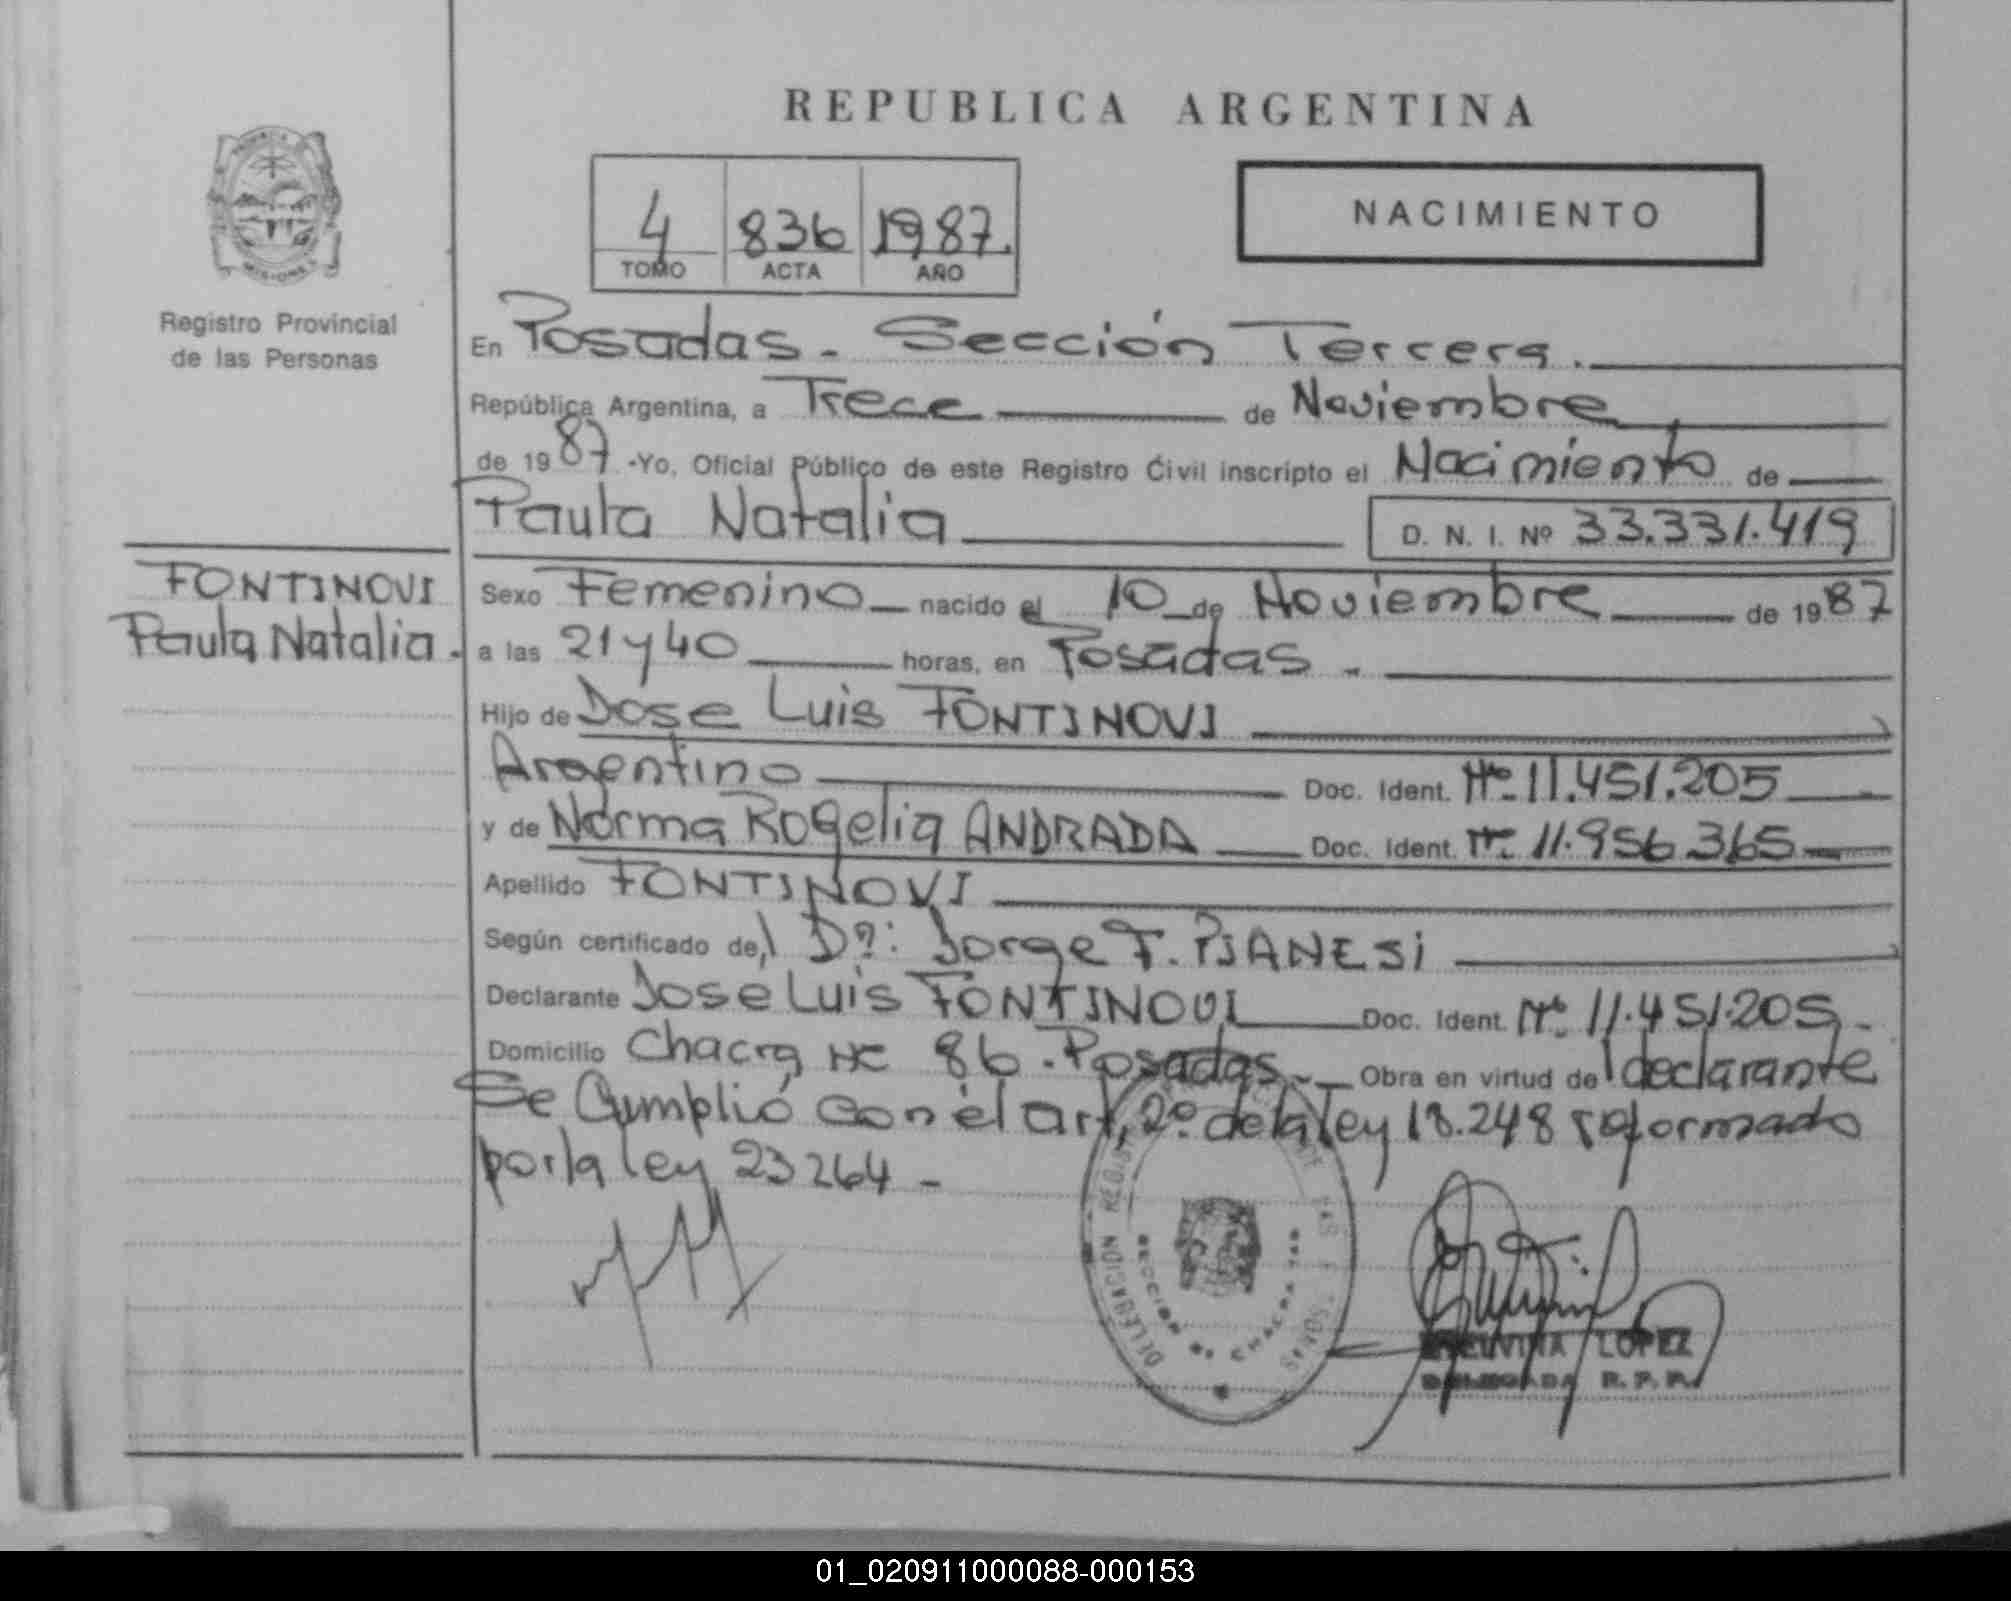 REPUBLICA ARGENTINA
PROVINCIA MISIONES
Registro Provincial
de las Personas
4 836 1987.
TOMO ACTA AÑO
NACIMIENTO
En Posadas. Sección Tercera.
República Argentina, a Trece de Noviembre
de 1987 -Yo, Oficial Público de este Registro Civil inscripto el Nacimiento de
Paula Natalia D. N. I. Nº 33.331.419
FONTINOVI
Paula Natalia.
Sexo Femenino nacido el 10 de Noviembre de 1987
a las 21 y 40 horas, en Posadas.
Hijo de Jose Luis FONTINOVI
Argentino Doc. Ident. Nº 11.451.205
y de Norma Rogelia ANDRADA Doc. Ident. Nº 11.956.365
Apellido FONTINOVI
Según certificado del Dº: Jorge F. PIANESI
Declarante Jose Luis FONTINOVI Doc. Ident. Nº 11.451.205.
Domicilio Chacra Nº 86. Posadas. Obra en virtud del declarante
Se Cumplió con el art, 2º de la ley 18.248 reformado
por la ley 23264 -
DELEGACION
SECCION CHACRA
LOPEZ
DELEGADA R. P. P.
01_020911000088-000153